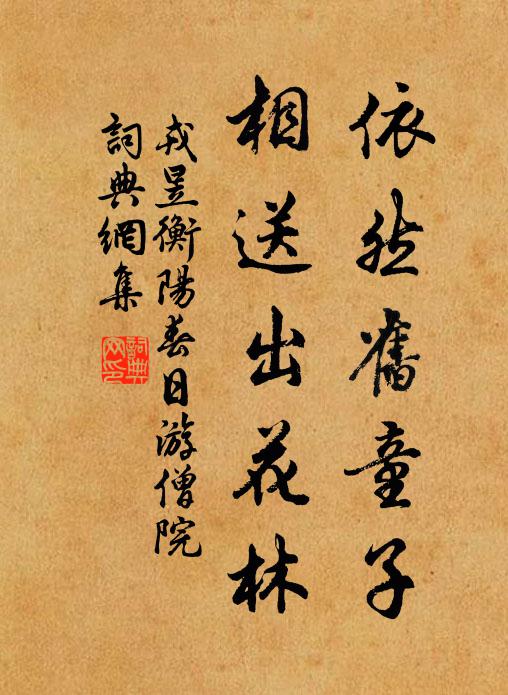 依然舊童子
相送出花林
戎昱衡陽春日游僧院
詞典網集
詞典網印